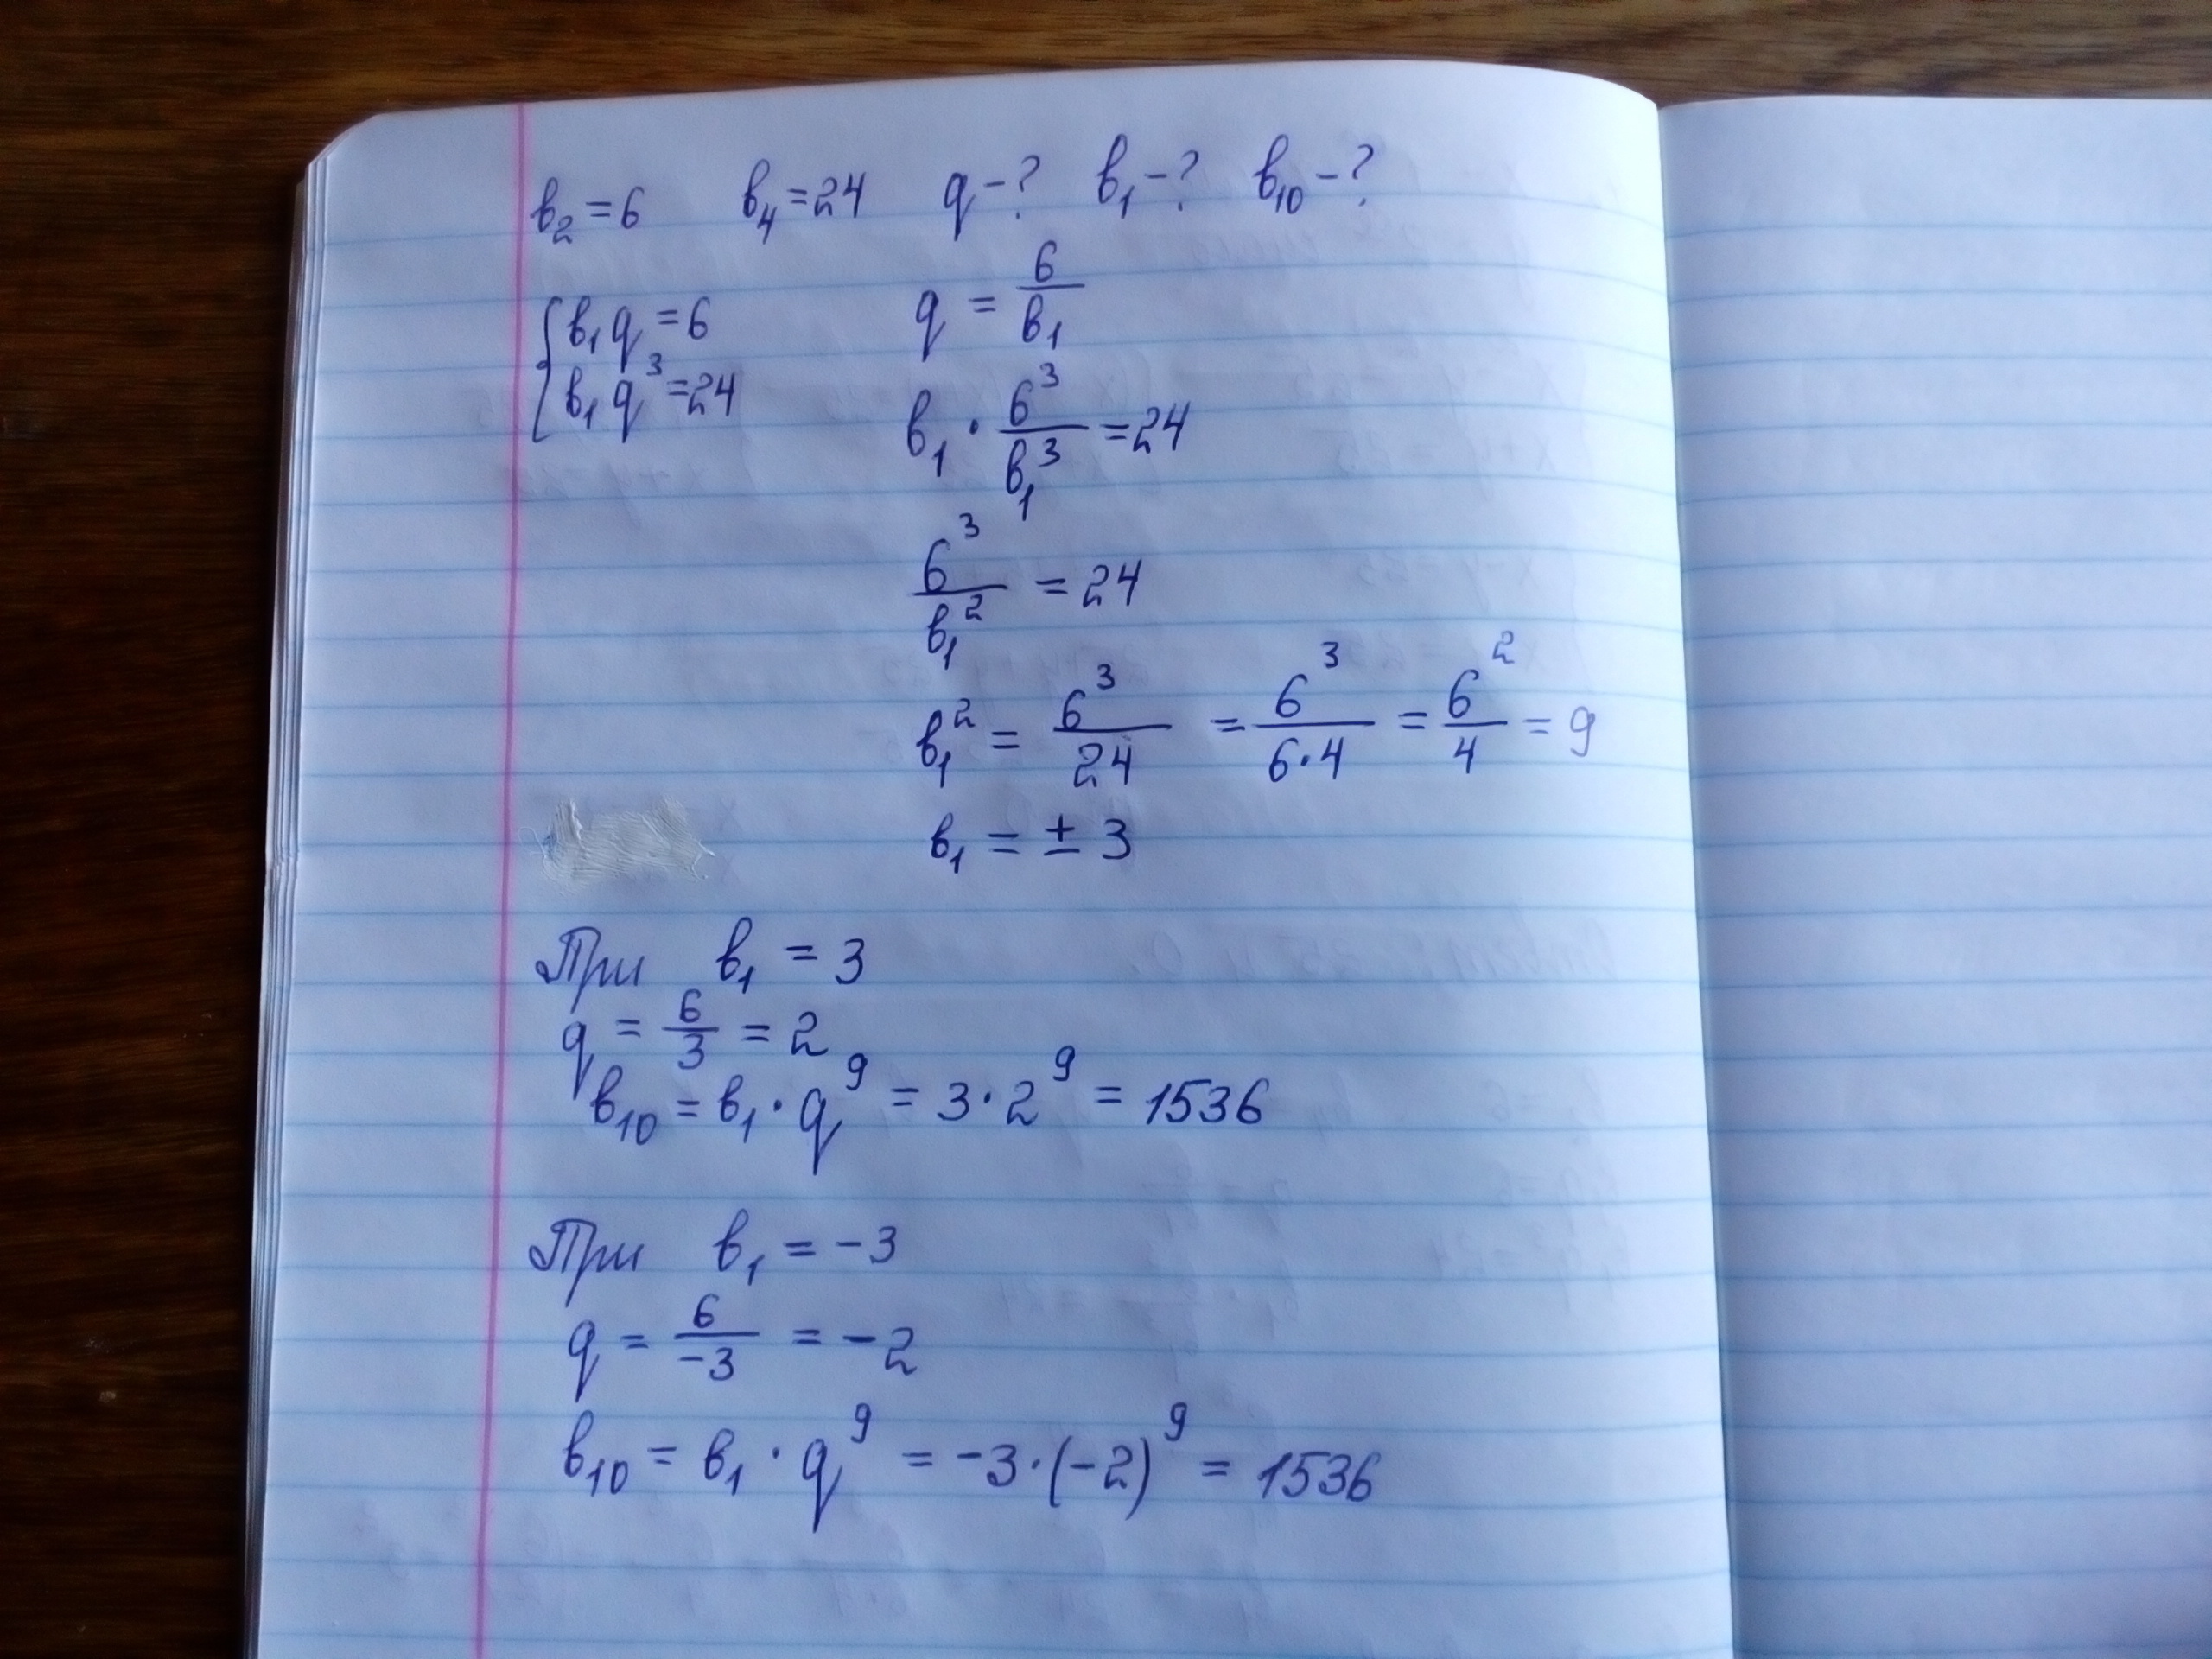 в₂ = 6 в₄ = 24 q - ? в₁ - ? в₁₀ - ?
{ в₁q = 6
в₁q³ = 24
q = 6/в₁
в₁ · 6³/в₁³ = 24
6³/в₁² = 24
в₁² = 6³/24 = 6³/(6·4) = 6²/4 = 9
в₁ = ± 3
При в₁ = 3
q = 6/3 = 2
в₁₀ = в₁ · q⁹ = 3 · 2⁹ = 1536
При в₁ = -3
q = 6/-3 = -2
в₁₀ = в₁ · q⁹ = -3 · (-2)⁹ = 1536